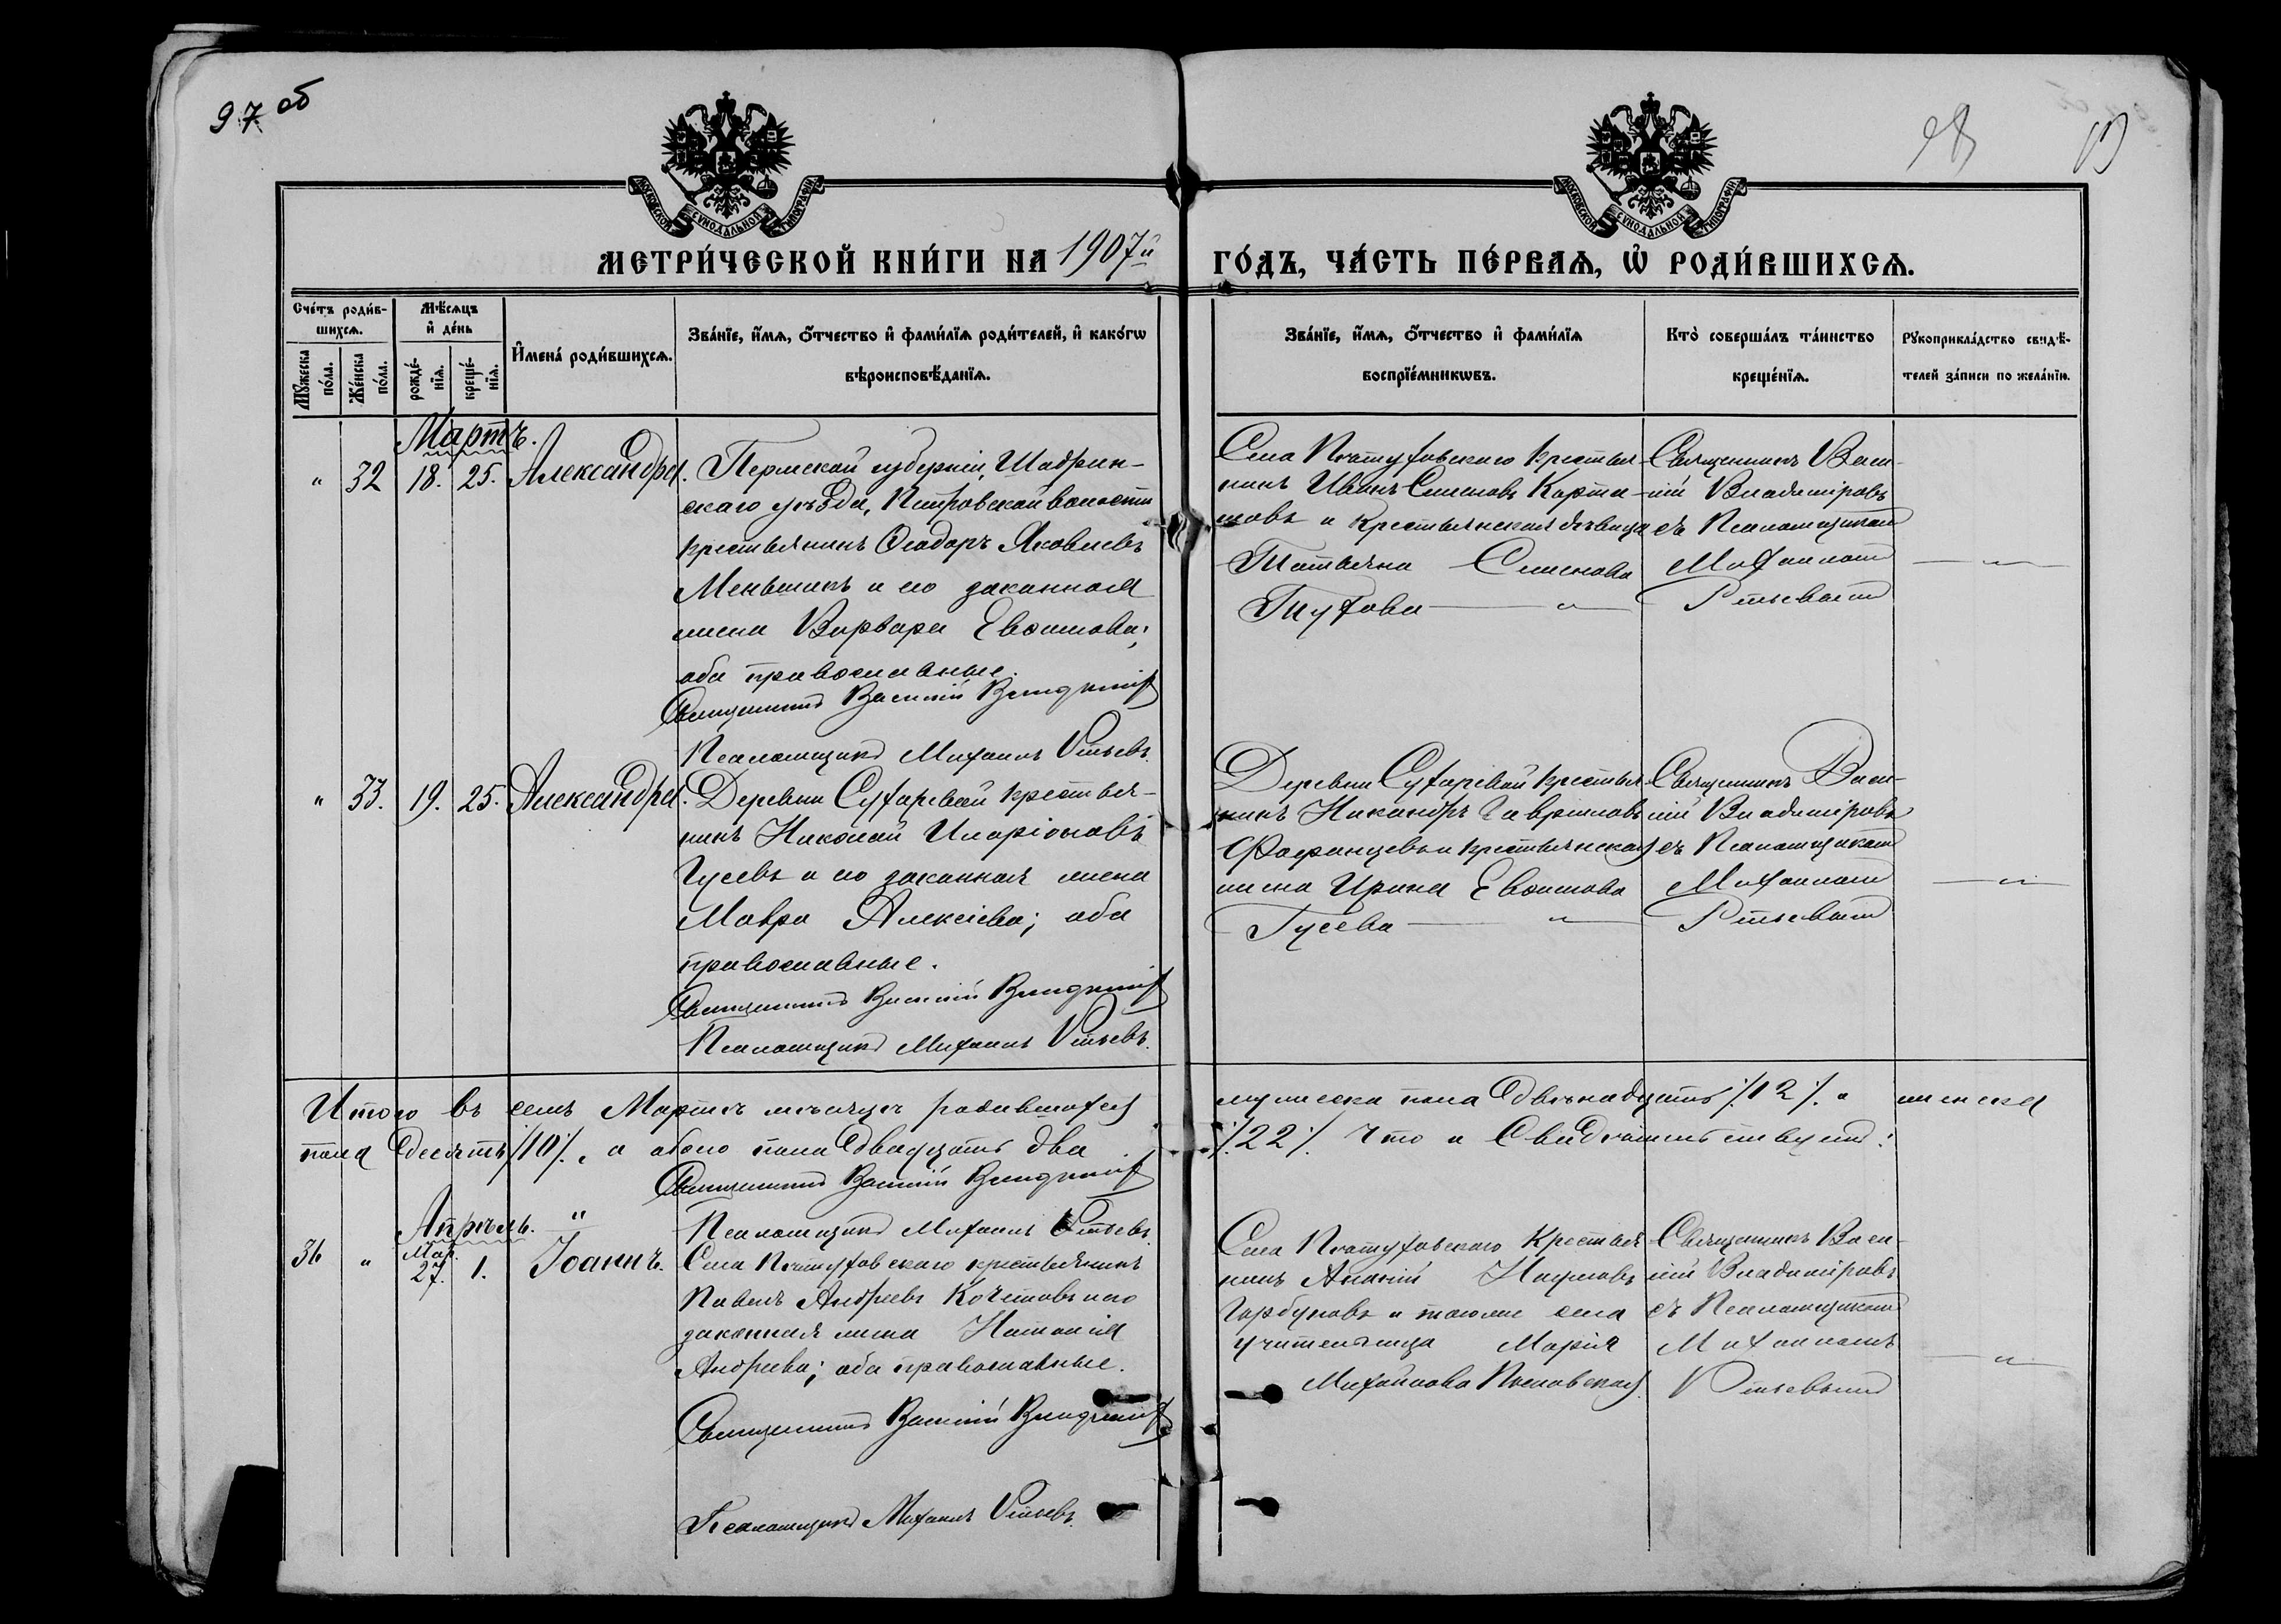 97 об
98
МОСКОВСКОЙ СѴНОДАЛЬНОЙ ТИПОГРАФІИ
МОСКОВСКОЙ СѴНОДАЛЬНОЙ ТИПОГРАФІИ
МЕТРИ́ЧЕСКОЙ КНИ́ГИ НА 1907й ГО́ДЪ, ЧА́СТЬ ПЕ́РВАѦ, Ѡ҆ РОДИ́ВШИХСѦ.
Сче́тъ роди́в-
шихсѧ.
Мꙋ́жеска по́ла.
Же́нска по́ла.
Мѣ́сѧцъ
и҆ де́нь
рожде́-
нїѧ.
креще́-
нїѧ.
И҆мена̀ роди́вшихсѧ.
Зва́нїе, и҆́мѧ, ѻ҆́тчество и҆ фами́лїѧ роди́телей, и҆ како́гѡ
вѣроисповѣ́данїѧ.
Зва́нїе, и҆́мѧ, ѻ҆́тчество и҆ фами́лїѧ
воспрїе́мникѡвъ.
Кто̀ соверша́лъ та́инство
креще́нїѧ.
Рꙋкоприкла́дство свидѣ́-
телей за́писи по жела́нїю.
Мартъ.
" 32 18. 25. Александра.
Пермской губерніи, Шадрин-
скаго уѣзда, Петровской волости
крестьянинъ Ѳеодоръ Яковлевъ
Меньшихъ и его законная
жена Варвара Евѳимова;
оба православные.
Священникъ Василій Владиміровъ
Псаломщикъ Михаилъ
Села крестья-
нинъ Иванъ Семеновъ
и крестьянская дѣвица
Татьяна Семенова
"
Священникъ Васи-
лій Владиміровъ
съ Псаломщикомъ
Михаиломъ
"
" 33. 19. 25. Александра.
Деревни Сухаревой крестья-
нинъ Николай Иларіоновъ
Гусевъ и его законная жена
Мавра Алексіева; оба
православные.
Священникъ Василій Владиміровъ
Псаломщикъ Михаилъ
Деревни Сухаревой крестья-
нинъ Никандръ Гавріиловъ
и крестьянская
жена Ирина Евѳимова
Гусева "
Священникъ Васи-
лій Владиміровъ
съ Псаломщикомъ
Михаиломъ
"
Итого въ семъ Мартѣ мѣсяцѣ родившихся мужеска пола двѣнадцать /12/. и женска
пола десять /10/., а обоего пола двадцать два /22/. Что и свидѣтельствуемъ:
Священникъ Василій Владиміровъ
Псаломщикъ Михаилъ
Апрѣль. "
36 " Мар. 27. 1. Іоаннъ.
Села крестьянинъ
Павелъ Андреевъ Кочетовъ и его
законная жена Наталія
Андреева; оба православные.
Священникъ Василій Владиміровъ
Псаломщикъ Михаилъ
Села крестья-
нинъ Ананій Наумовъ
Горбуновъ и того же села
учительница Марія
Михайлова
Священникъ Васи-
лій Владиміровъ
съ Псаломщикомъ
Михаиломъ
"